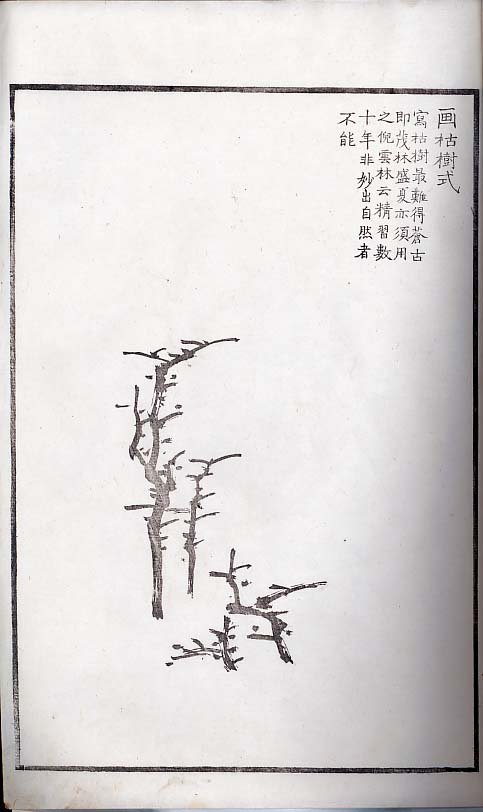 画枯樹式
寫枯樹最難得蒼古
即茂林盛夏亦須用
之倪雲林云精習數
十年非妙出自然者
不能